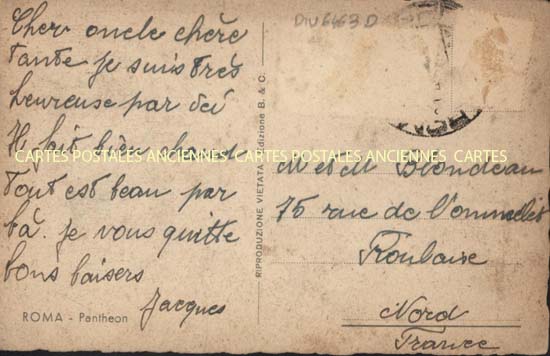 Cher oncle chère
tante je suis très
heureuse par ici
Il fait bien chaud
Tout est beau par
là. je vous quitte
bons baisers
Jacques
ROMA - Pantheon
RIPRODUZIONE VIETATA - Edizione B. & C.
DIV6463D
M et M Blondeau
75 rue de l'ommelet
Roubaix
Nord
France
CARTES POSTALES ANCIENNES CARTES POSTALES ANCIENNES CARTES